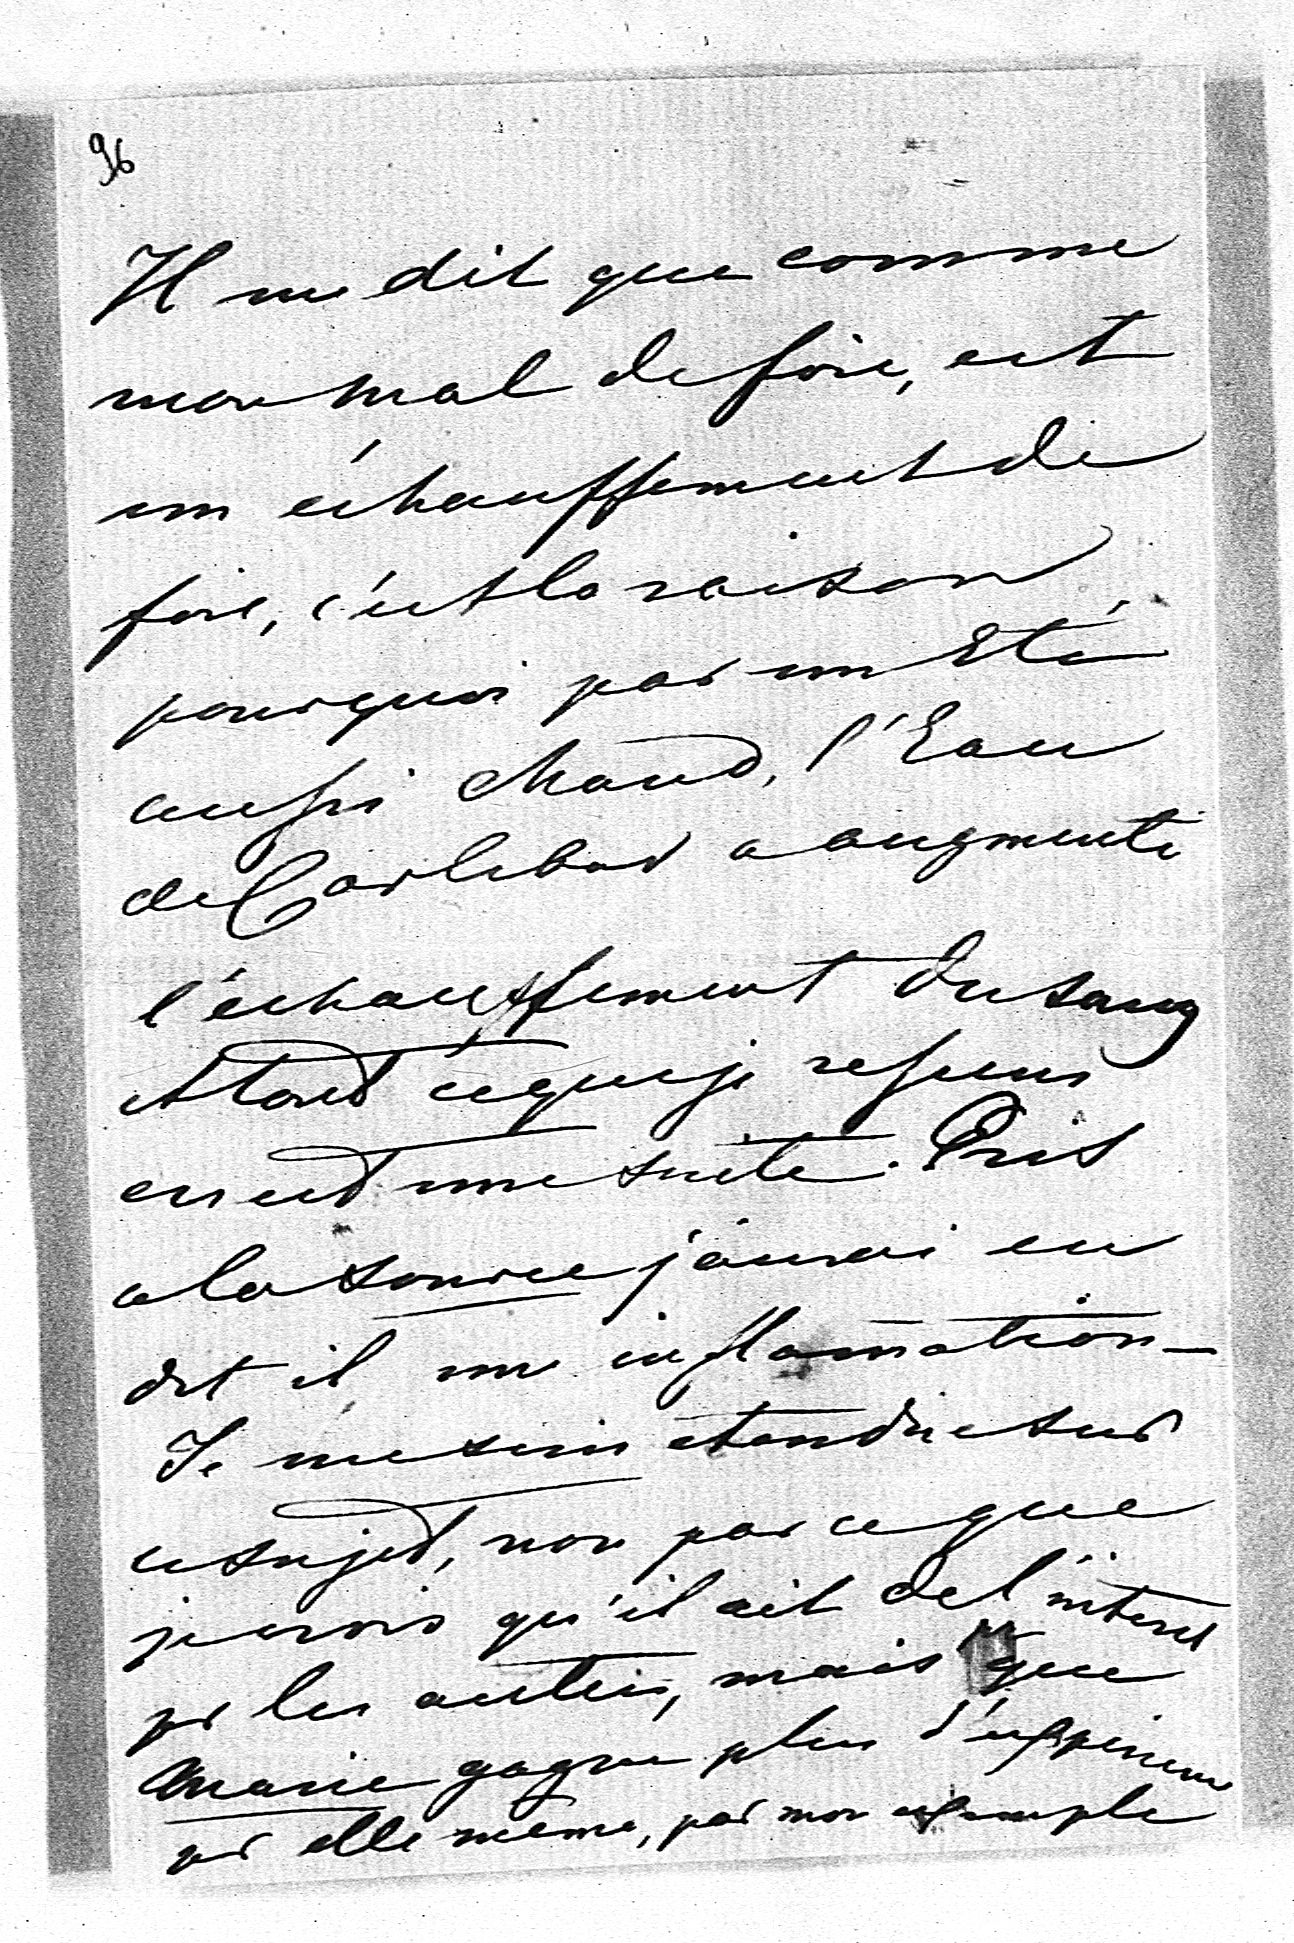 96
Il me dit que comme
mon mal de foie, est
un échauffement de
foie, c'est la raison,
pourquoi par un Eté
aussi chaud, l'Eau
de Carlsbad a augmenté
l'échauffement du sang
et tout ce que je ressens
en est une suite. Pris
a la source j'aurai eu
dit il une inflamation_
Je me suis etendue sur
ce sujet, non par ce que
je crois qu'il ait de l'interet
pr les autres, mais que
Marie gagne plus d'expérience
pr elle meme, par mon exemple